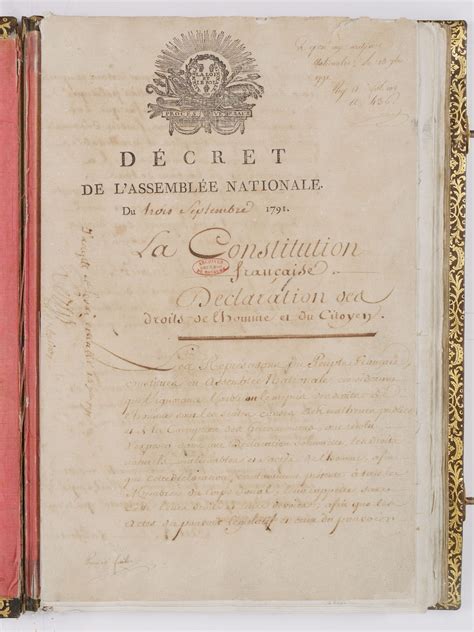 LA LOI
ET
LE ROI
DÉCRET
DE L'ASSEMBLÉE NATIONALE.
Du trois Septembre 1791.
La Constitution
française.
Déclaration des
droits de l'homme et du Citoyen.
Les Représentans du Peuple Français
constitués en Assemblée Nationale, considérant
que l'ignorance, l'oubli ou le mépris des droits de
l'homme sont les seules causes des malheurs publics
et de la corruption des Gouvernemens, ont résolu
d'exposer dans une Déclaration solemnelle, les droits
naturels, inaliénables et sacrés de l'homme, afin
que cette déclaration, constamment présente à tous les
Membres du Corps social, leur rappelle sans
cesse leurs droits et leurs devoirs; afin que les
actes du pouvoir législatif et ceux du pouvoir